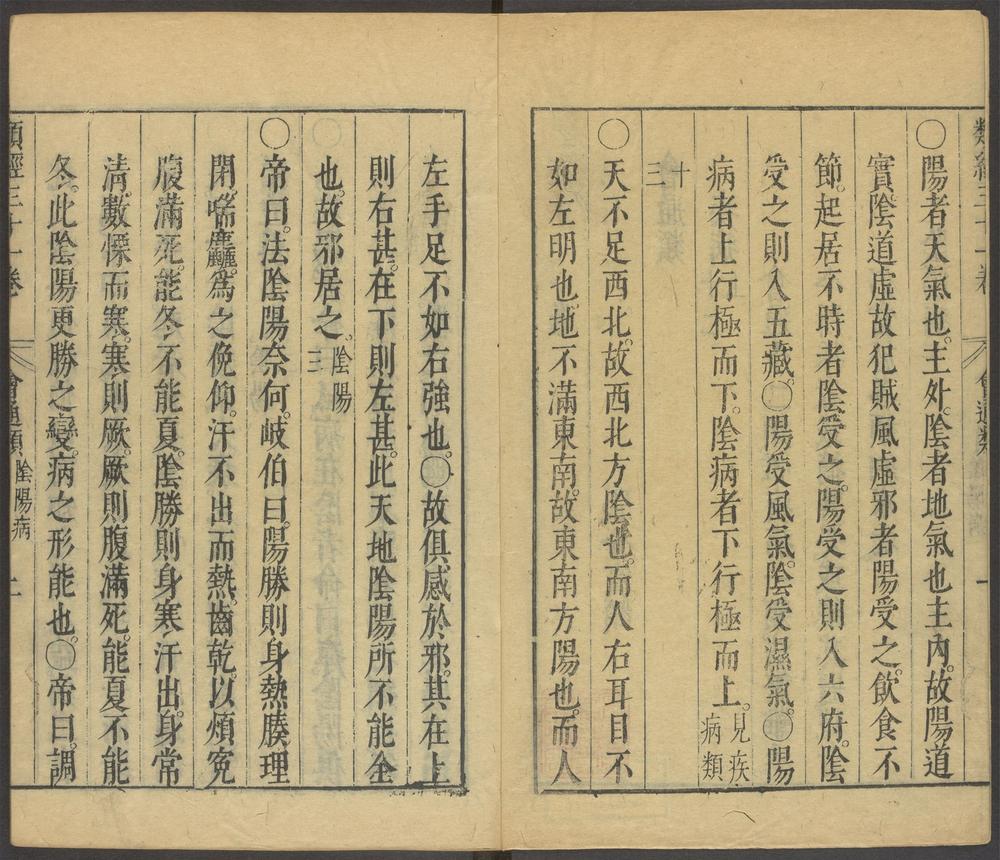 類經三十一卷 會通類 一
○陽者天氣也。主外。陰者地氣也主內。故陽道
實。陰道虛故犯賊風虛邪者陽受之。飲食不
節。起居不時者陰受之。陽受之則入六府。陰
受之則入五藏。○陽受風氣。陰受濕氣。○陽
病者上行極而下。陰病者下行極而上。見疾病類
十三
○天不足西北。故西北方陰也。而人右耳目不
如左明也。地不滿東南。故東南方陽也。而人
左手足不如右強也。○故俱感於邪。其在上
則右甚。在下則左甚。此天地陰陽所不能全
也。故邪居之。陰陽三
○帝曰。法陰陽奈何。岐伯曰。陽勝則身熱腠理
閉。喘麤爲之俛仰。汗不出而熱。齒乾。以煩寃
腹滿死。能冬不能夏。陰勝則身寒汗出。身常
清。數慄而寒。寒則厥。厥則腹滿死。能夏不能
冬。此陰陽更勝之變。病之形能也。○帝曰。調
類經三十一卷 會通類 陰陽病 上